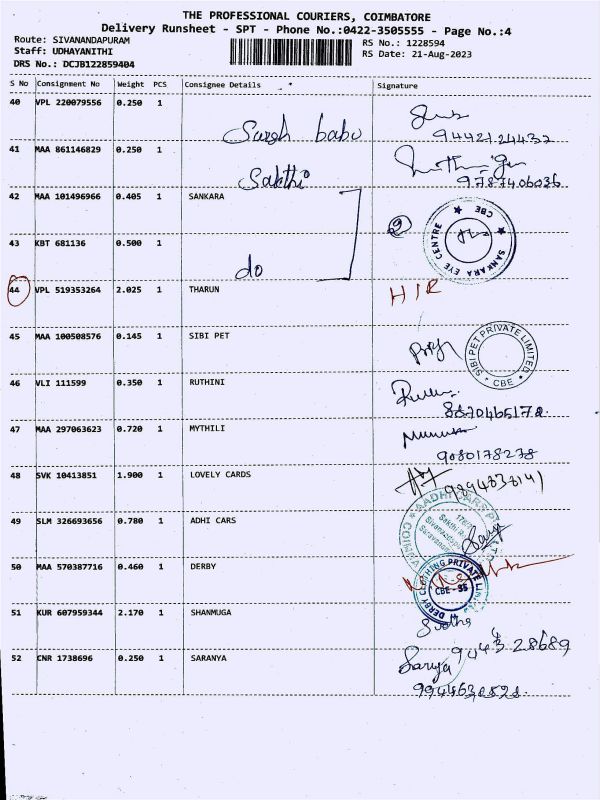 THE PROFESSIONAL COURIERS, COIMBATORE
Delivery Runsheet - SPT - Phone No.:0422-3505555 - Page No.:4
Route: SIVANANDAPURAM
RS No.: 1228594
Staff: UDHAYANITHI
RS Date: 21-Aug-2023
DRS No.: DCJB122859404
S No Consignment No Weight PCS Consignee Details Signature
40 VPL 220079556 0.250 1
Suresh babu 9442124432
41 MAA 861146829 0.250 1
Sakthi 9787406036
42 MAA 101496966 0.405 1 SANKARA
2
SANKARA EYE CENTRE ★ CBE ★
43 KBT 681136 0.500 1
do
44 VPL 519353264 2.025 1 THARUN
HIR
45 MAA 100508576 0.145 1 SIBI PET
SIBI PET PRIVATE LIMITED
CBE
46 VLI 111599 0.350 1 RUTHINI
8870465172
47 MAA 297063623 0.720 1 MYTHILI
9080178278
48 SVK 10413851 1.900 1 LOVELY CARDS
49 SLM 326693656 0.780 1 ADHI CARS
AADHI CARS
50 MAA 570387716 0.460 1 DERBY
DERBY CLOTHING PRIVATE
CBE - 35
51 KUR 607959344 2.170 1 SHANMUGA
Sudha
9043 28689
52 CNR 1738696 0.250 1 SARANYA
Sarya